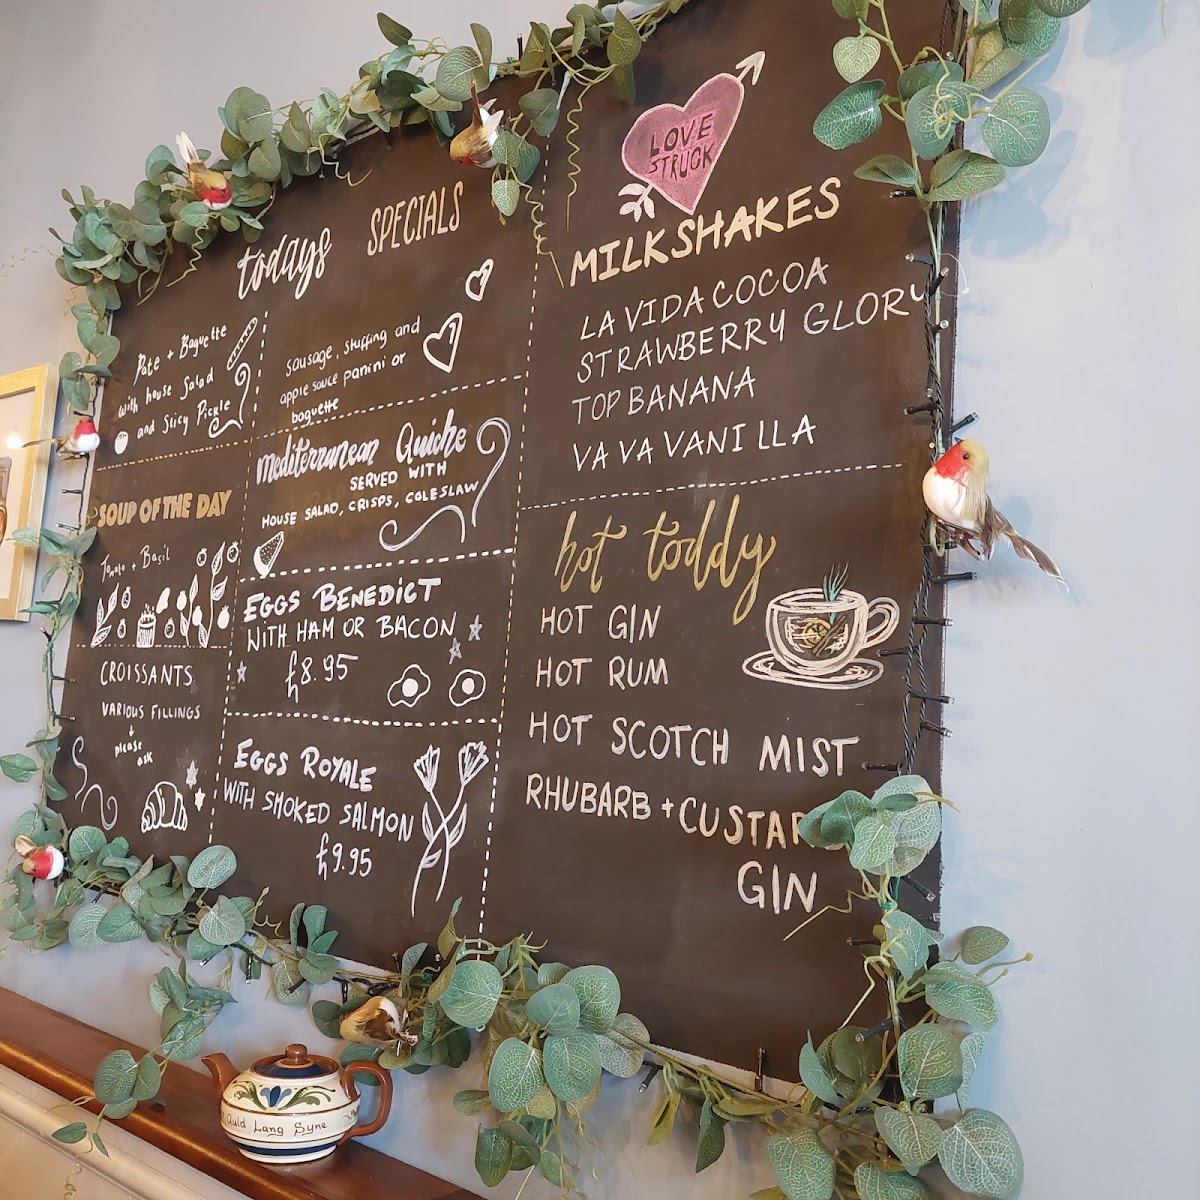 todays SPECIALS
Pate + Baguette
with house Salad
and Sticy Pickle
SOUP OF THE DAY
Tomato + Basil
CROISSANTS
VARIOUS FILLINGS
please
ask
Sausage, Stuffing and
apple sauce panini or
baguette
Mediterranean Quiche
SERVED WITH
HOUSE SALAD, CRISPS, COLESLAW
EGGS BENEDICT
WITH HAM OR BACON
£8.95
EGGS ROYALE
WITH SMOKED SALMON
£9.95
LOVE
STRUCK
MILKSHAKES
LA VIDA COCOA
STRAWBERRY GLORY
TOP BANANA
VA VA VANILLA
hot toddy
HOT GIN
HOT RUM
HOT SCOTCH MIST
RHUBARB + CUSTAR
GIN
Auld Lang Syne